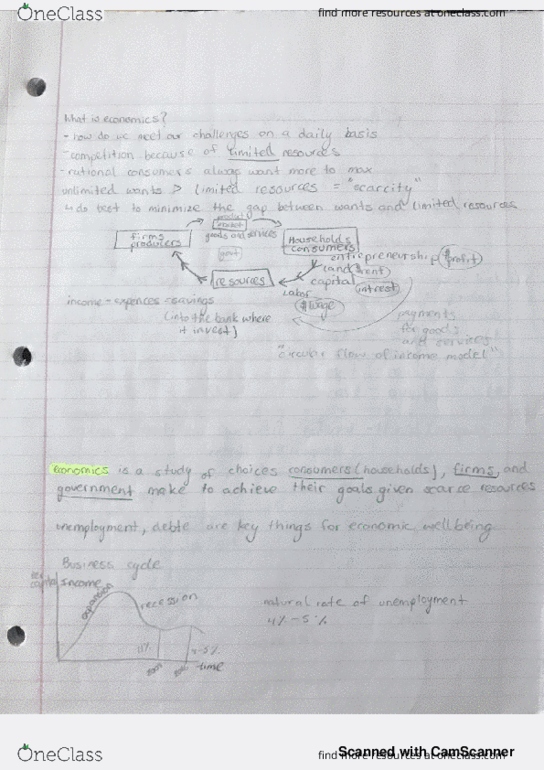 OneClass
find more resources at oneclass.com
What is economics?
- how do we meet our challenges on a daily basis
- competition because of limited resources
- rational consumers always want more to max
unlimited wants > limited resources = "scarcity"
↳ do best to minimize the gap between wants and limited resources
product market
firms producers
goods and services
Households consumers
govt
entrepreneurship $profit
land $rent
resources
capital intrest
Labor $wage
income - expences = savings
(into the bank where it invest)
payments for goods and services
"circular flow of income model"
Economics is a study of choices consumers (households), firms, and
government make to achieve their goals given scarce resources
unemployment, debt are key things for economic wellbeing
Business cycle
capital income
expansion
recession
natural rate of unemployment
4% - 5%
time
OneClass
Scanned with CamScanner
find more resources at oneclass.com